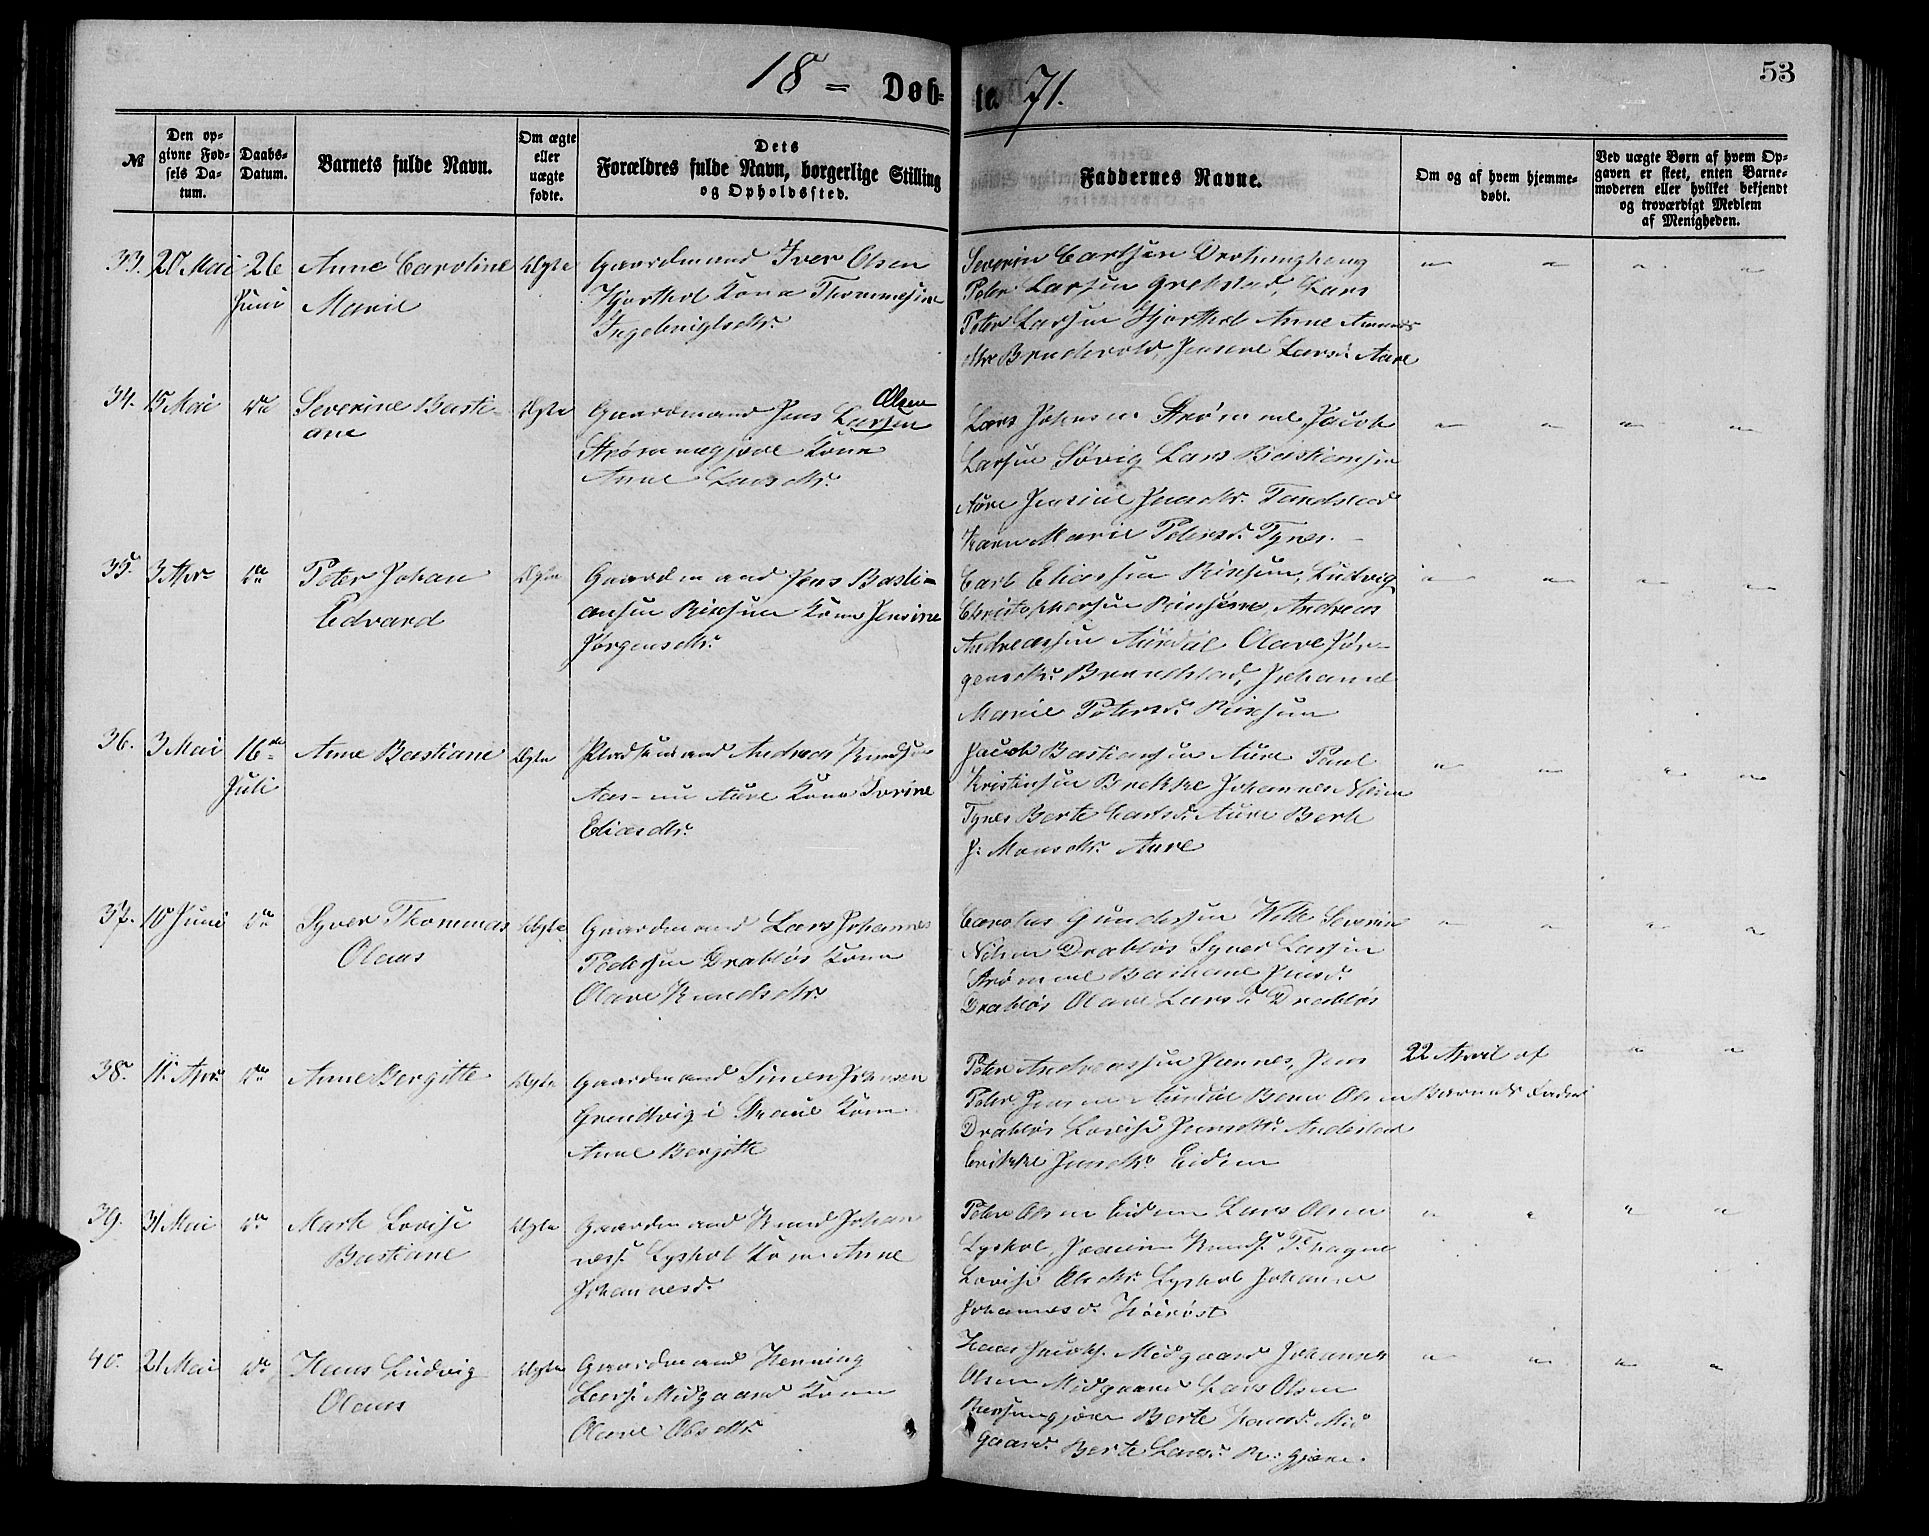 18 = Døb-
te 71.
53
№
Den op-
givne Fød-
sels Da-
tum.
Daabs-
Datum.
Varnets fulde Navn.
Om ægte
eller
uægte
fødte.
Dets
Forældres fulde Navn, borgerlige Stilling
og Opholdssted.
Faddernes Navne.
Om og af hvem hjemme-
døbt.
Ved uægte Børn af hvem Op-
gaven er skeet, enten Barne-
moderen eller hvilket bekjendt
og troværdigt Medlem
af Menigheden.
33. 27 Mai 26
Juni
Anne Caroline
Marie
Ægte
Gaardmand Iver Olsen
Hjorthol Kone Thommesine
Ingebrigtsdtr.
Severin Carlsen
Peter Larsen Grebstad, Lars
Peter Larsen Hjorthol Anne
Brudevold, Jensine Larsd. Aure
34. 15 Mai do
Severine Basti-
ane
Ægte
Olsen
Gaardmand Jens Larsen
Strømmegjære Kone
Anne Larsdtr.
Lars Johnsen Strømme, Jacob
Larsen Søvig Lars Bastiansen
Aure Jensine Jensdtr. Tandstad
Karn Marie Petersd. Tynes
35. 3 Apr do
Peter Johan
Edvard
Ægte
Gaardmand Jens Basti-
ansen Kone Jensine
Jørgensdtr.
Carl Eliassen Ludvig
Christophersen Andreas
Andreassen Aurdal Olave Jør-
gensdtr. Brundstad, Johanne
Marie Petersd.
36. 3 Mai 16de
Juli
Anne Bastiane
Ægte
Pladsmand Andreas Knudsen
Aure Kone
Eliasdtr.
Jacob Bastiansen Aure Paul
Kristensen Brekke Johannes
Tynes Berte Larsd. Aure Berte
J. Monsdtr. Aure
37. 10 Juni do
Syver Thommas
Olaus
Ægte
Gaardmand Lars Johannes
Pedersen Drabløs Kone
Olave Knudsdtr.
Carolus Gundersen Severin
Nilsen Drabløs Syver Larsen
Strømme Jensd.
Drabløs Olave Larsd. Drabløs
38. 11 Apr. do
Anne Bergitte
Ægte
Gaardmand Simen Jensen
Grundvig i Kone
Anne Bergitte
Peter Andreassen Jens
Peter Jensen Aurdal Bernt Olsen
Drabløs Lovise Jensdtr. Andestad
Jensdtr. Eidem
22 April af
Barnets Fader
39. 31 Mai do
Marte Lovise
Bastiane
Ægte
Gaardmand Knud Johan
ness. Lyshol Kone Anne
Johannesd.
Peter Olsen Eidem Lars Olsen
Lyshol, Knuds.
Lovise Olsdtr. Lyshol Johanne
Johannesd.
40. 21 Mai do
Hans Ludvig
Olaus
Ægte
Gaardmand Henning
Lars. Midgaard Kone
Olave Olsdtr.
Hans Jacobs. Midgaard Johannes
Olsen Midgaard Lars Olsen
Berte Hansd. Mid
gaard. Berte Larsd.